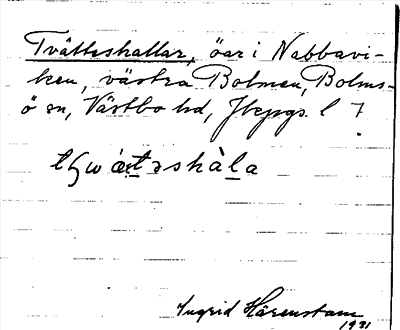 Tvätteshallar, öar i Nabbavi-
ken, västra Bolmen, Bolms-
ö sn, Västbo hd, Jkpgs. l 7
Ingrid Härenstam
1931